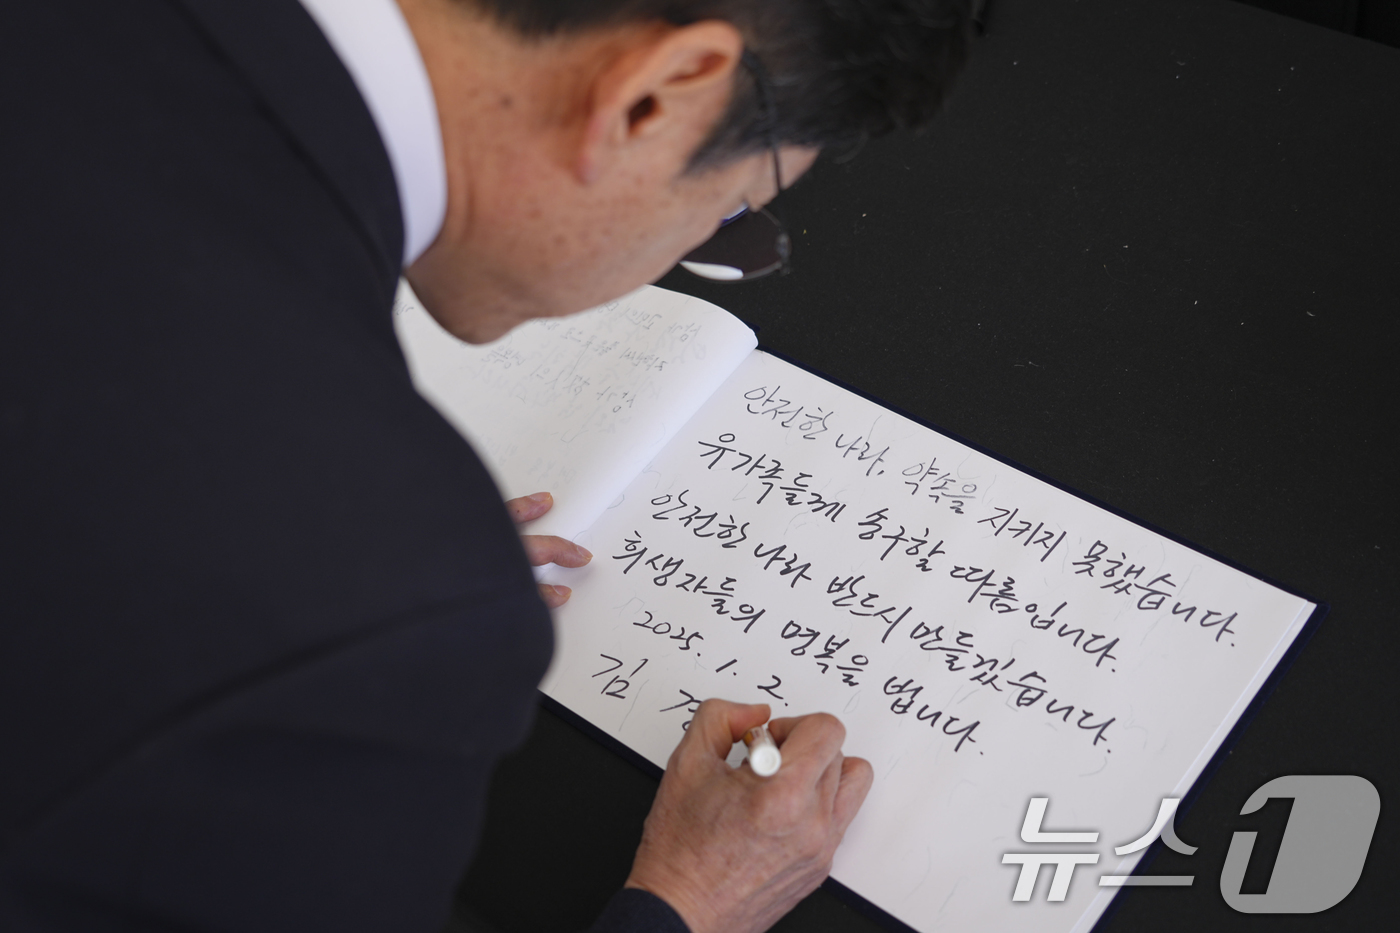 안전한 나라, 약속을 지키지 못했습니다.
유가족들께 송구할 따름입니다.
안전한 나라 반드시 만들겠습니다.
희생자들의 명복을 빕니다.
2025. 1. 2.
김 경
뉴스1